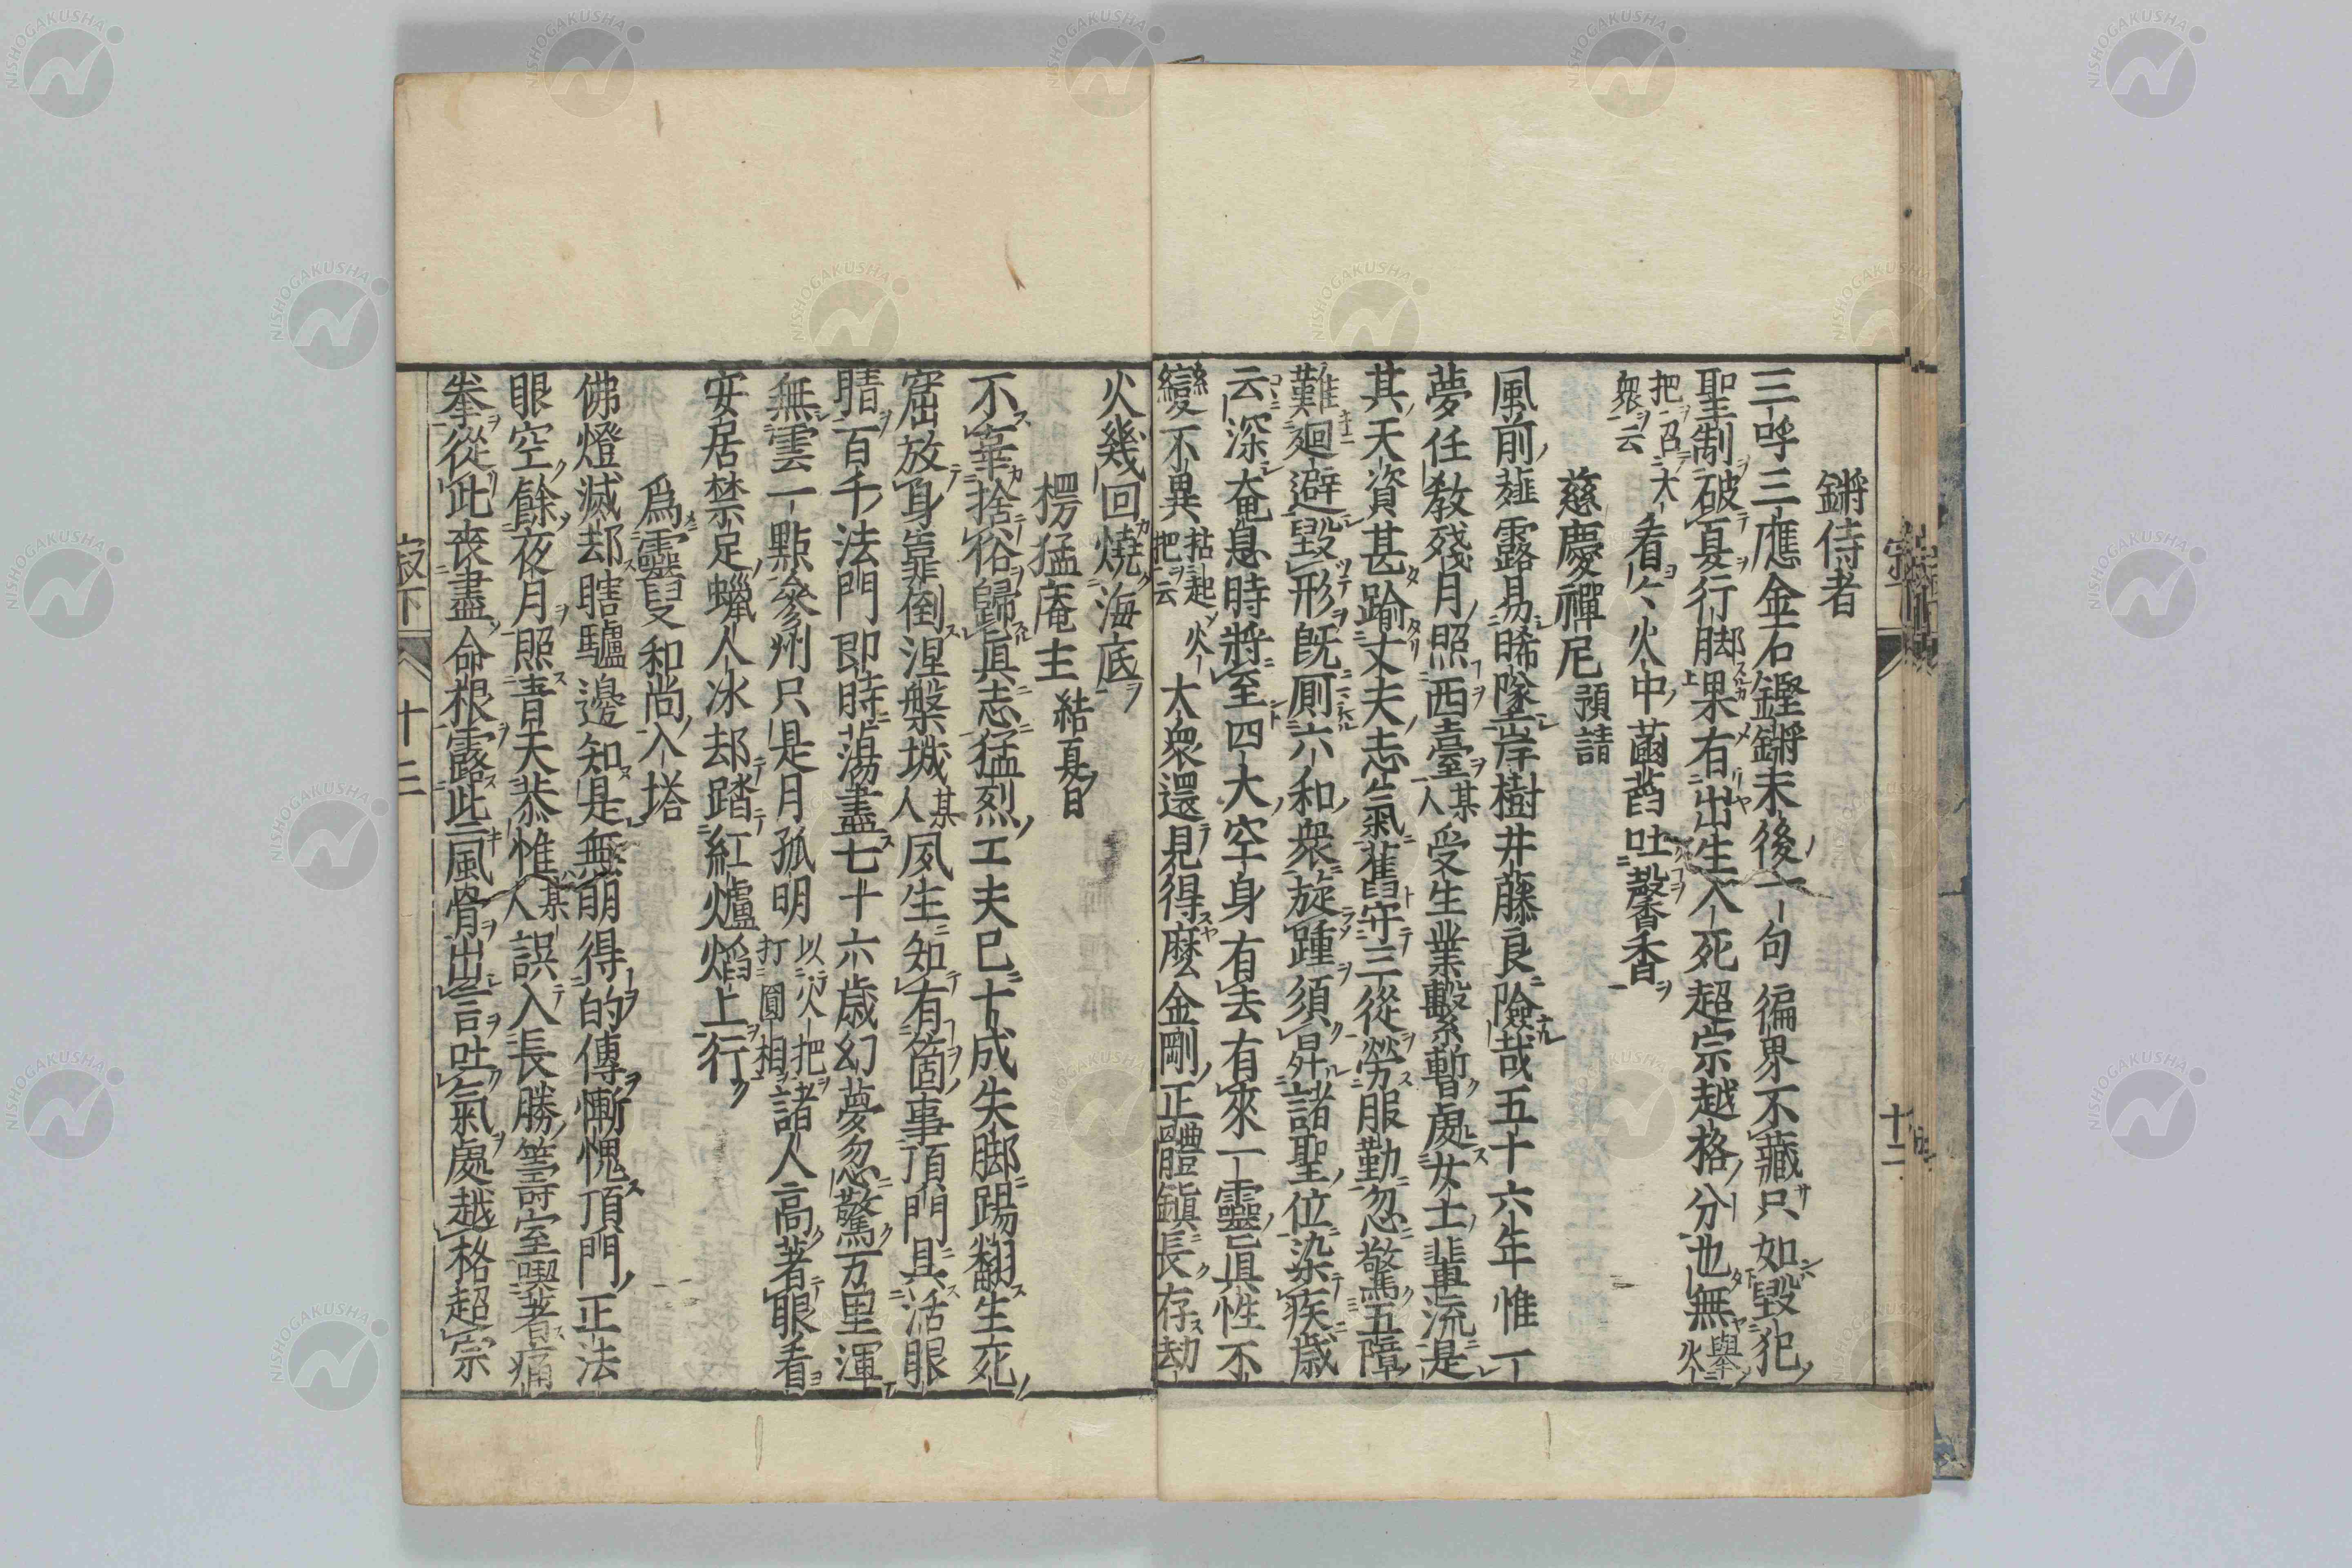 鏘侍者
三呼三應金石鏗鏘末後一句徧界不藏只如毀犯
聖制破夏行脚果有出生入死超宗越格分也無擧火
把召大衆云看々火中菡萏吐馨香
慈慶禪尼預請
風前薤露易晞墜岸樹井藤良險哉五十六年惟一
夢任教殘月照西臺某人受生業繫暫處女士輩流是
其天資甚踰丈夫志氣舊守三從勞服勤忽驚五障
難廻避毀形旣厠六和衆旋踵須昇諸聖位染疾歲
云深奄息時將至四大空身有去有來一靈眞性不
變不異拈起火把云大衆還見得麼金剛正體鎭長存劫
火幾回燒海底
楞猛庵主結夏日
不幸捨俗歸眞志猛烈工夫已十成失脚踢翻生死
窟放身靠倒涅槃城某人夙生知有箇事頂門具活眼
睛百千法門即時蕩盡七十六歲幻夢忽驚万里渾
無雲一點參州只是月孤明以火把打圓相諸人高著眼看
安居禁足蠟人冰却踏紅爐焰上行
爲靈叟和尚入塔
佛燈滅却瞎驢邊知是無朋得的傳慚愧頂門正法
眼空餘夜月照青天恭惟某人誤入長勝籌室喫著痛
拳從此喪盡命根露此風骨出言吐氣處越格超宗
寂下 十三
十二